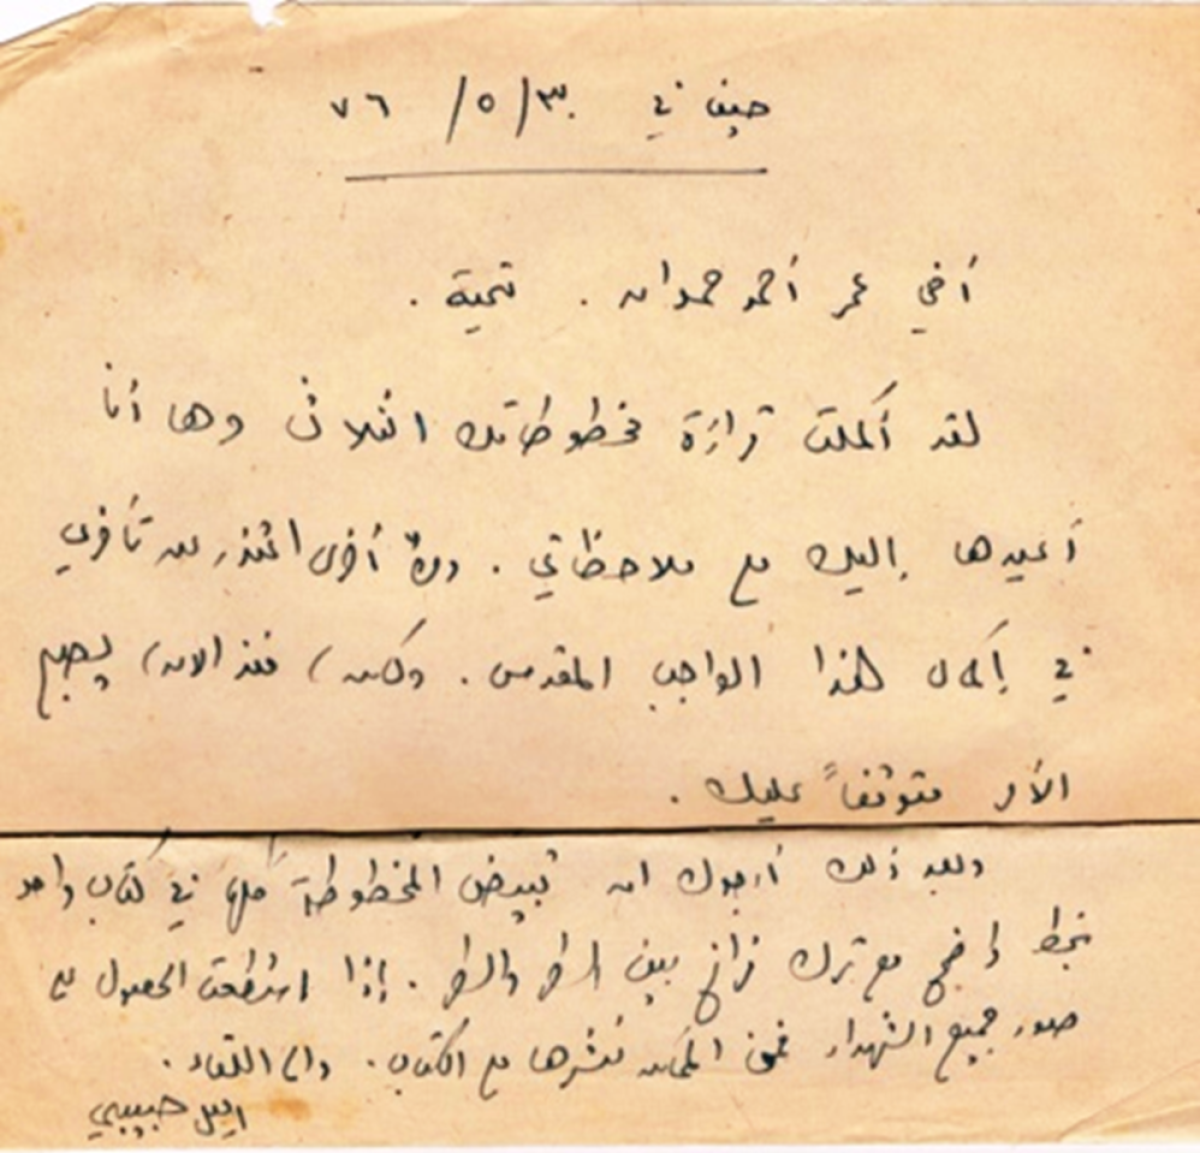 حيفا في ٣٠/ ٥/ ٧٦
أخي عمر أحمد حمدان . تحية .
لقد أكملت قراءة مخطوطاتك الثلاث وها أنا
أعيدها إليك مع ملاحظاتي . ومرة أخرى اعتذر عن تأخري
في إكمال هذا الواجب المقدس . ولكن، منذ الان، يصبح
الأمر متوقفاً عليك .
وبعد ذلك أرجوك ان تبيض المخطوطة كلها في كتاب واحد
بخط واضح مع ترك فراغ بين السطر والسطر . إذا استطعت الحصول على
صور جميع الشهداء فمن الممكن نشرها مع الكتاب . والى اللقاء .
اميل حبيبي